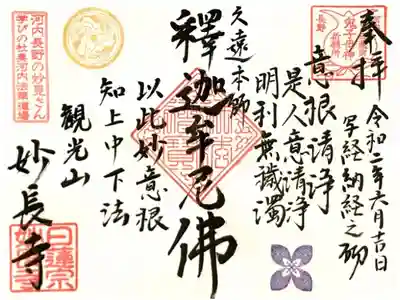 奉拝
令和二年六月吉日
写経納経之砌
鬼子母神
意根清浄
是人意清浄
明利無穢濁
久遠本師
釋迦牟尼佛
以此妙意根
知上中下法
観光山
妙長寺
河内長野の妙見さん
学びの杜奥河内法華道場
日蓮宗
妙長寺